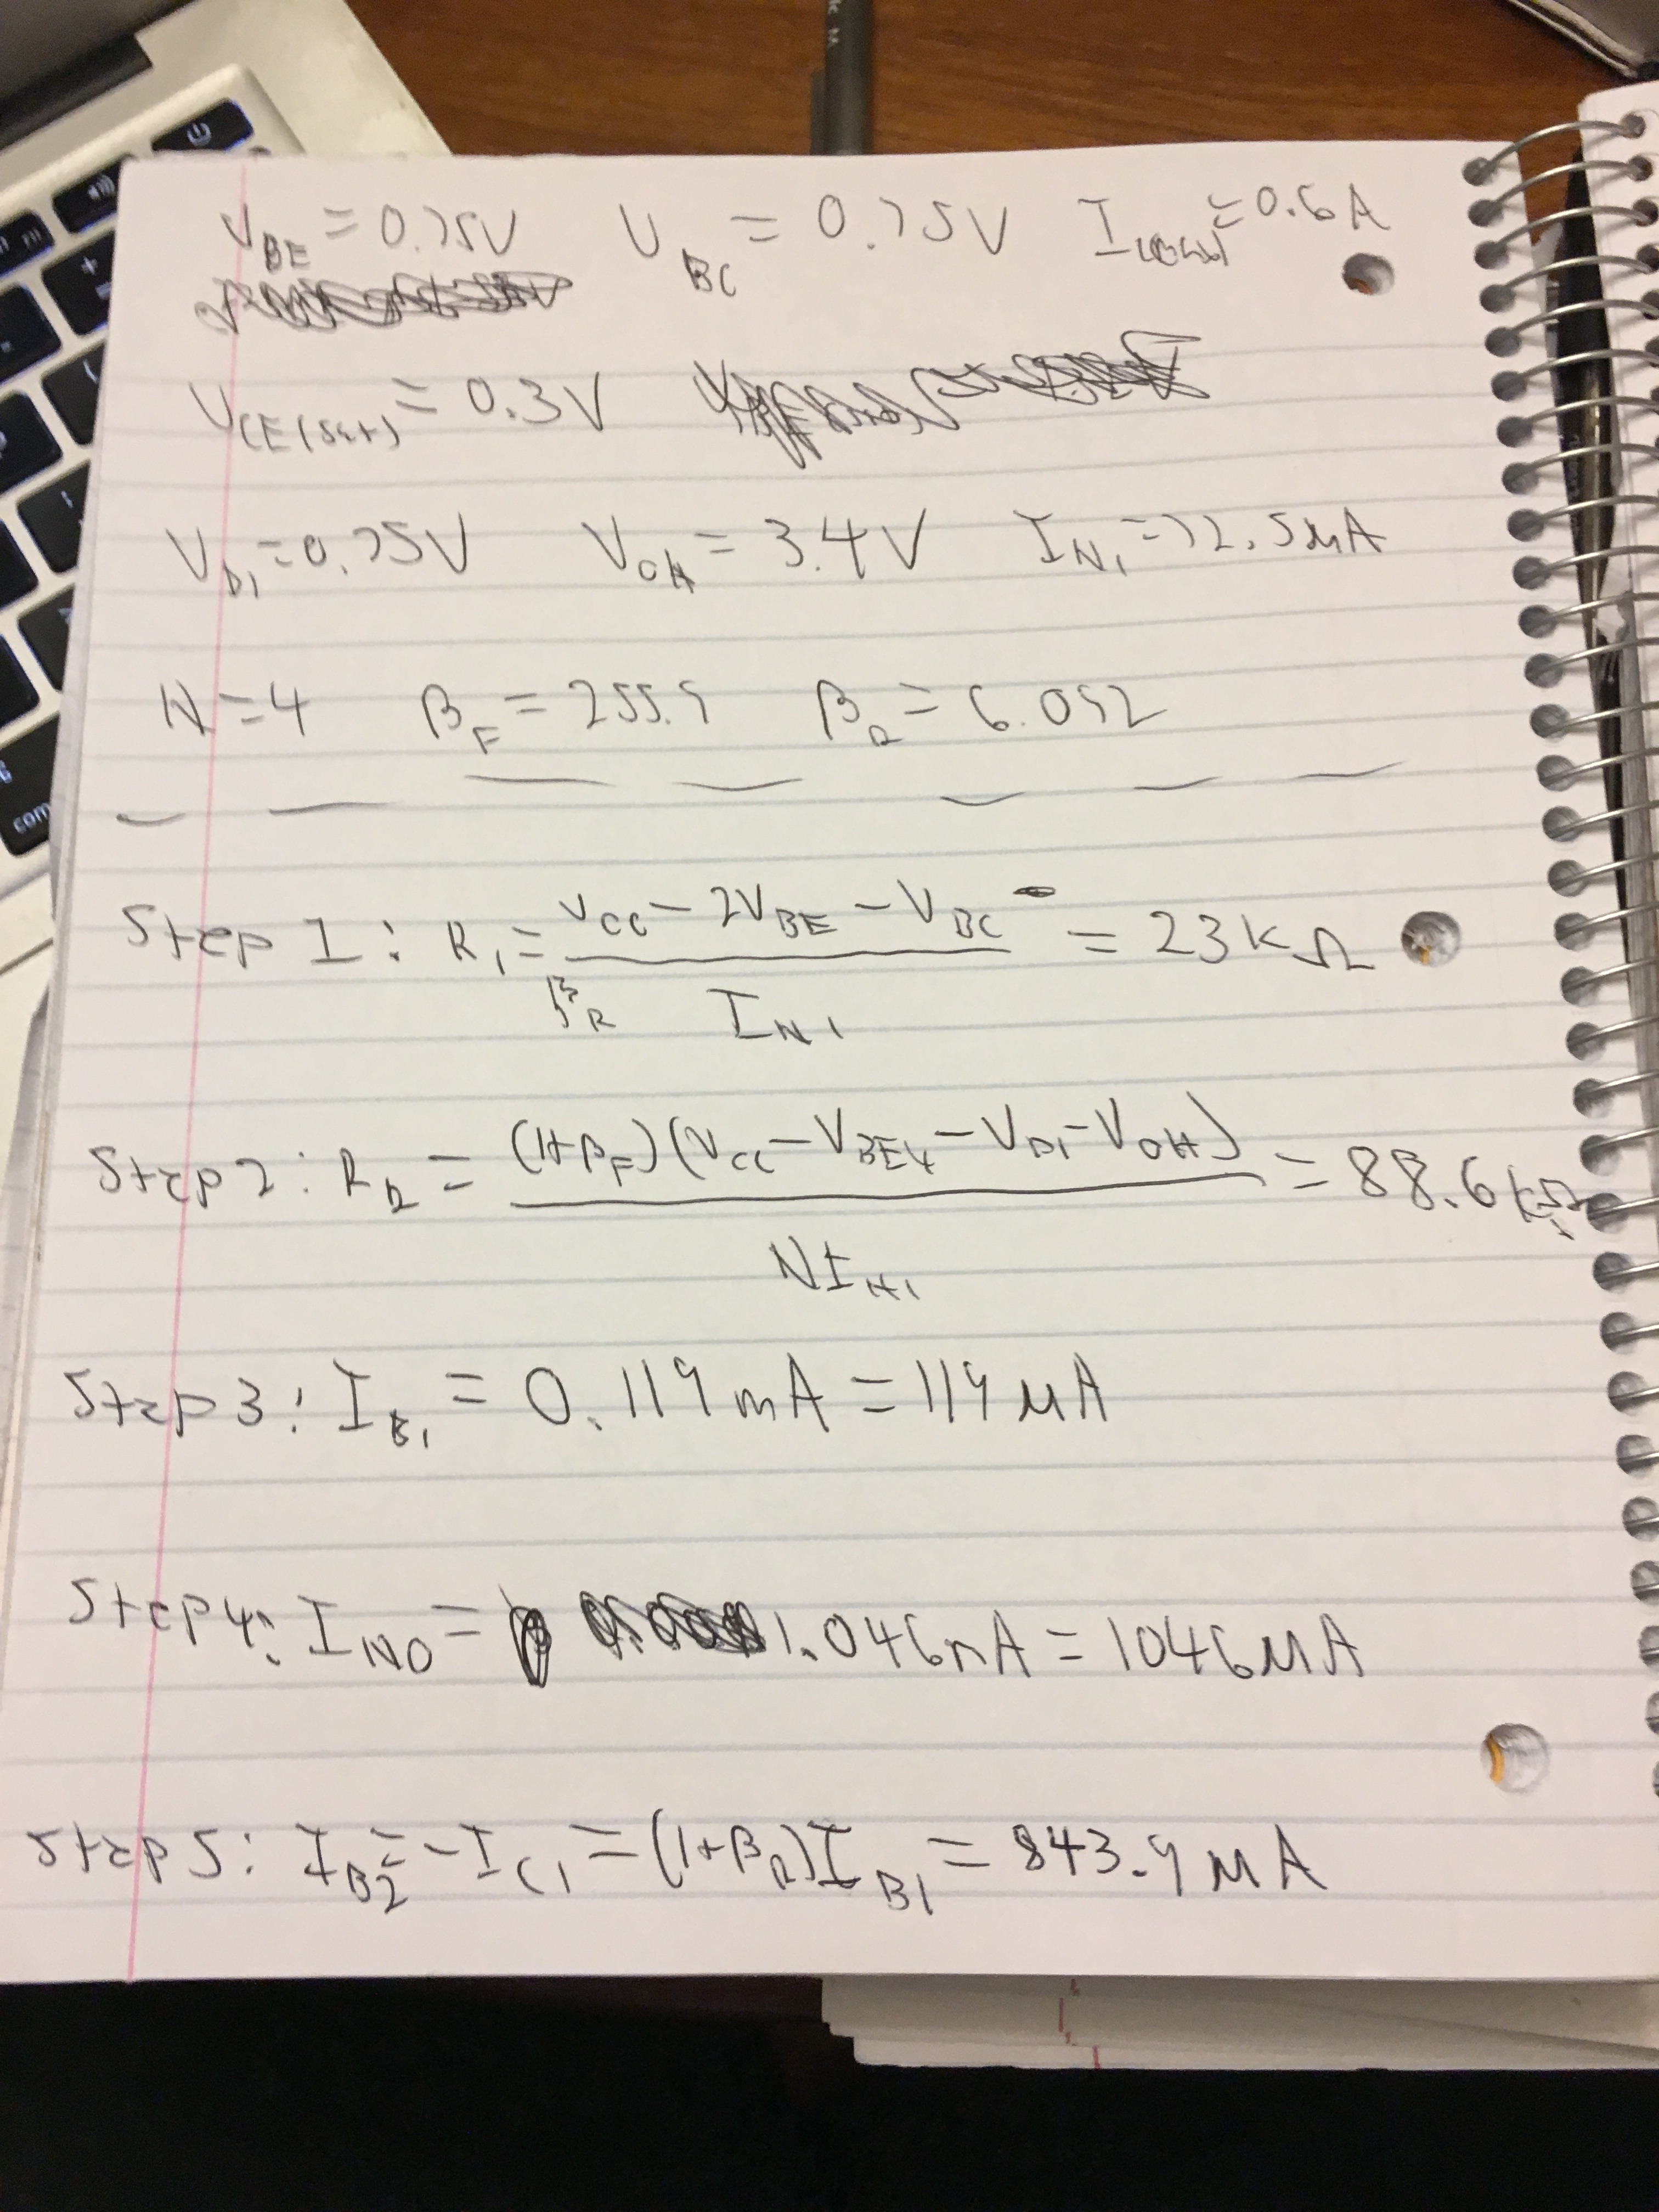 V_BE = 0.75V V_BC = 0.75V I_C(max) = 0.6A
V_CE(sat) = 0.3V
V_D1 = 0.75V V_OH = 3.4V I_N1 = 72.5μA
N = 4 β_F = 255.9 β_R = 6.092
Step 1: R_1 = β_R (V_CC - 2V_BE - V_BC) / I_N1 = 23kΩ
Step 2: R_2 = (1+β_F)(V_CC - V_BE4 - V_D1 - V_OH) / NI_N1 = 88.6kΩ
Step 3: I_B1 = 0.119mA = 119μA
Step 4: I_N0 = 1.046mA = 1046μA
Step 5: I_B2 = -I_C1 = (1+β_R)I_B1 = 843.9μA
com